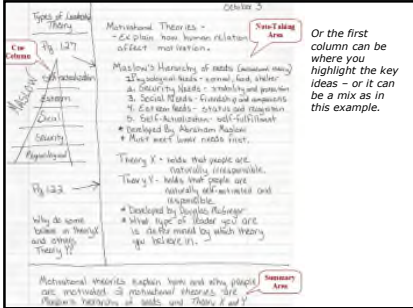 October 3
Types of Leadership
Theory
Pg. 127
Cue
Column
MASLOW
Self-actualization
Esteem
Social
Security
Physiological
Pg 122
Why do some
believe in Theory X
and others
Theory Y?
Motivational Theories -
- Explain how human relation
affect motivation.
Note-Taking
Area
Maslow's Hierarchy of needs
1. Physiological Needs - survival, food, shelter
2. Security Needs - stability and protection
3. Social Needs - friendship and companions
4. Esteem Needs - status and recognition
5. Self-Actualization - self-fulfillment
* Developed By Abraham Maslow
* Must meet lower needs first.
Theory X - holds that people are
naturally irresponsible.
Theory Y - holds that people are
naturally self-motivated and
responsible.
* Developed by Douglas McGregor
* What type of leader you are
is determined by which theory
you believe in.
Motivational theories explain how and why people
are motivated. 2 motivational theories are
Maslow's hierarchy of needs and Theory X and Y
Summary
Area
Or the first
column can be
where you
highlight the key
ideas – or it can
be a mix as in
this example.